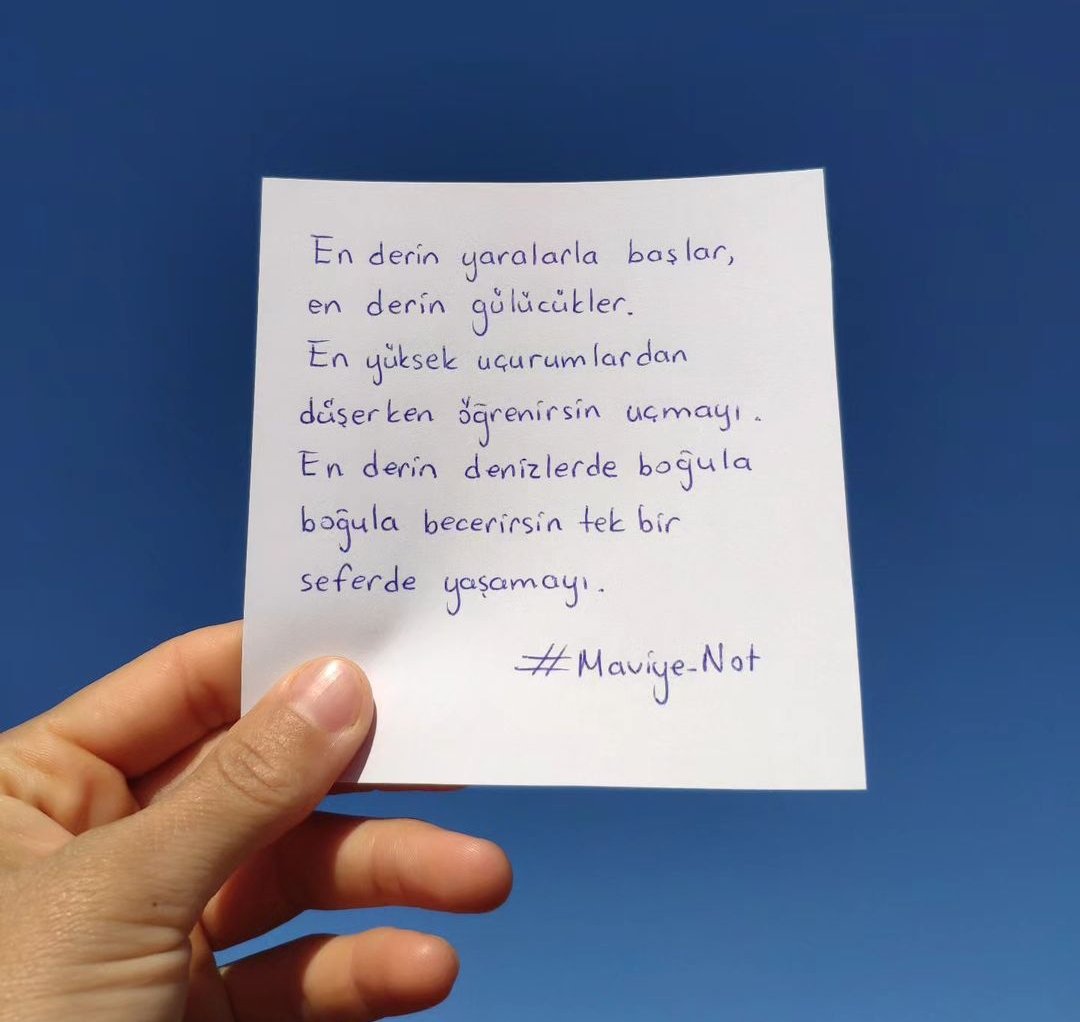 En derin yaralarla başlar,
en derin gülücükler.
En yüksek uçurumlardan
düşerken öğrenirsin uçmayı.
En derin denizlerde boğula
boğula becerirsin tek bir
seferde yaşamayı.
#Maviye_Not